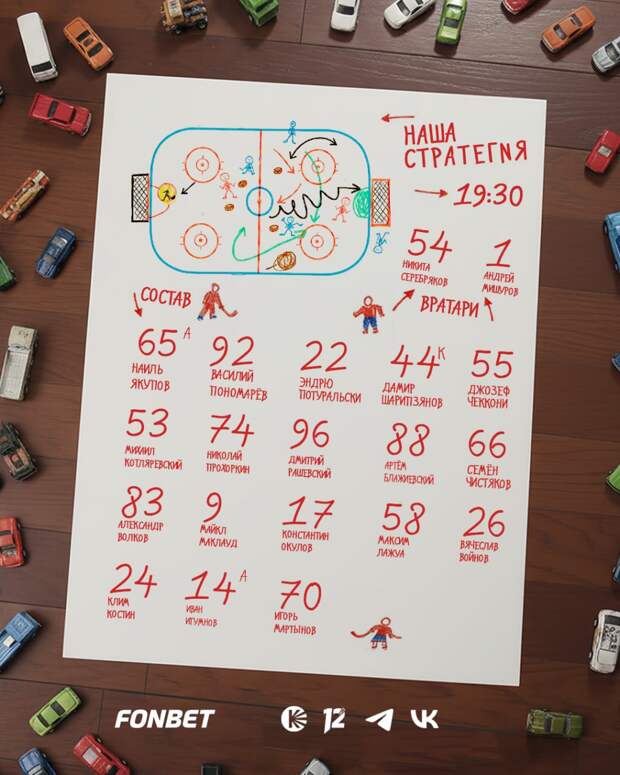 НАША
СТРАТЕГИЯ
19:30
54
НИКИТА
СЕРЕБРЯКОВ
1
АНДРЕЙ
МИШУРОВ
ВРАТАРИ
СОСТАВ
65 А
НАИЛЬ
ЯКУПОВ
92
ВАСИЛИЙ
ПОНОМАРЁВ
22
ЭНДРЮ
ПОТУРАЛЬСКИ
44 К
ДАМИР
ШАРИПЗЯНОВ
55
ДЖОЗЕФ
ЧЕККОНИ
53
МИХАИЛ
КОТЛЯРЕВСКИЙ
74
НИКОЛАЙ
ПРОХОРКИН
96
ДМИТРИЙ
РАШЕВСКИЙ
88
АРТЁМ
БЛАЖИЕВСКИЙ
66
СЕМЁН
ЧИСТЯКОВ
83
АЛЕКСАНДР
ВОЛКОВ
9
МАЙКЛ
МАКЛАУД
17
КОНСТАНТИН
ОКУЛОВ
58
МАКСИМ
ЛАЖУА
26
ВЯЧЕСЛАВ
ВОЙНОВ
24
КЛИМ
КОСТИН
14 А
ИВАН
ИГУМНОВ
70
ИГОРЬ
МАРТЫНОВ
FONBET